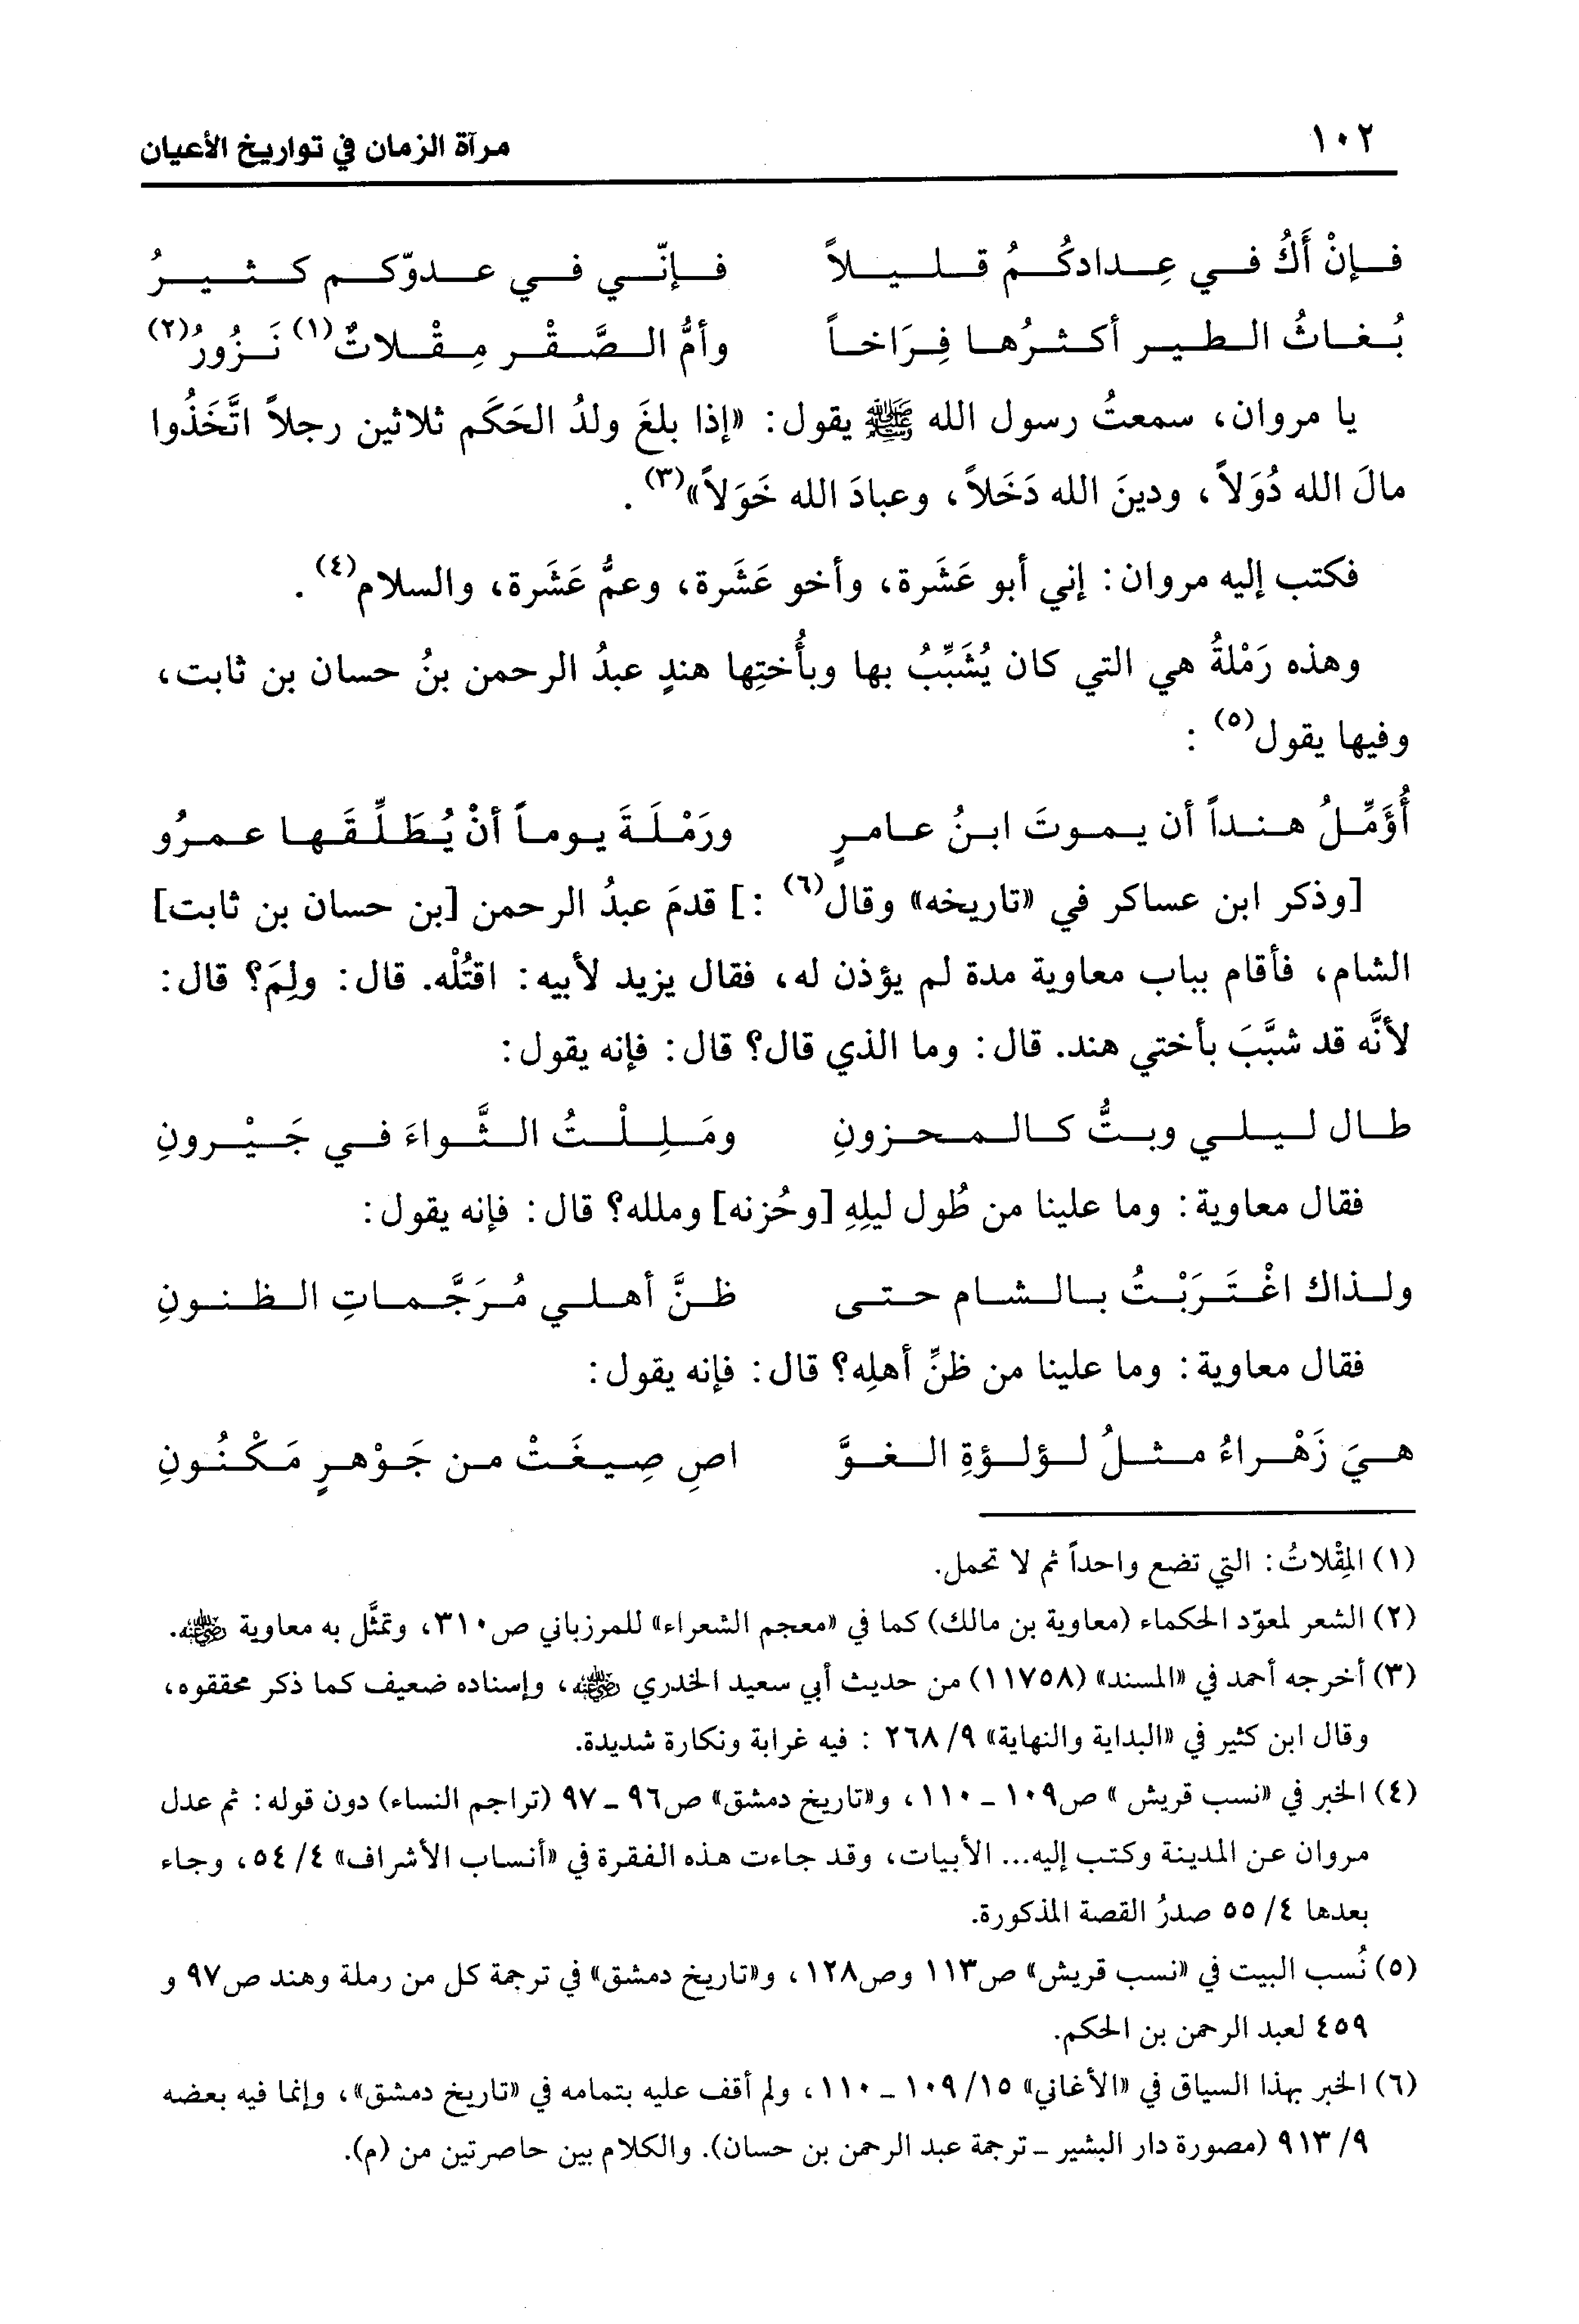 ١٠٢ مرآة الزمان في تواريخ الأعيان
فإنْ أَكُ في عِدادكُمُ قليلاً فإنّي في عدوّكم كثيرُ
بُغاثُ الطير أكثرُها فِرَاخاً وأمُّ الصَّقْر مِقْلاتٌ(١) نَزُورُ(٢)
يا مروان، سمعتُ رسول الله ﷺ يقول: «إذا بلغَ ولدُ الحَكَم ثلاثين رجلاً اتَّخَذُوا
مالَ الله دُوَلاً، ودينَ الله دَخَلاً، وعبادَ الله خَوَلاً»(٣).
فكتب إليه مروان: إني أبو عَشَرة، وأخو عَشَرة، وعمُّ عَشَرة، والسلام(٤).
وهذه رَمْلةُ هي التي كان يُشَبِّبُ بها وبأُختِها هندٍ عبدُ الرحمن بنُ حسان بن ثابت،
وفيها يقول(٥):
أُؤَمِّلُ هنداً أن يموتَ ابنُ عامرٍ ورَمْلَةَ يوماً أنْ يُطَلِّقَها عمرُو
[وذكر ابن عساكر في «تاريخه» وقال(٦):] قدمَ عبدُ الرحمن [بن حسان بن ثابت]
الشام، فأقام بباب معاوية مدة لم يؤذن له، فقال يزيد لأبيه: اقتُلْه. قال: ولِمَ؟ قال:
لأنَّه قد شبَّبَ بأختي هند. قال: وما الذي قال؟ قال: فإنه يقول:
طال ليلي وبتُّ كالمحزونِ ومَلِلْتُ الثَّواءَ في جَيْرونِ
فقال معاوية: وما علينا من طُول ليلِهِ [وحُزنه] وملله؟ قال: فإنه يقول:
ولذاك اغْتَرَبْتُ بالشام حتى ظنَّ أهلي مُرَجَّماتِ الظنونِ
فقال معاوية: وما علينا من ظنِّ أهلِه؟ قال: فإنه يقول:
هيَ زَهْراءُ مثلُ لؤلؤةِ الغوَّ اصِ صِيغَتْ من جَوْهرٍ مَكْنُونِ
(١) المِقْلاتُ: التي تضع واحداً ثم لا تحمل.
(٢) الشعر لمعوّد الحكماء (معاوية بن مالك) كما في «معجم الشعراء» للمرزباني ص٣١٠، وتمثَّل به معاوية رضي الله عنه.
(٣) أخرجه أحمد في «المسند» (١١٧٥٨) من حديث أبي سعيد الخدري رضي الله عنه، وإسناده ضعيف كما ذكر محققوه،
وقال ابن كثير في «البداية والنهاية» ٩/ ٢٦٨ : فيه غرابة ونكارة شديدة.
(٤) الخبر في «نسب قريش » ص١٠٩ ـ ١١٠، و«تاريخ دمشق» ص٩٦ ـ ٩٧ (تراجم النساء) دون قوله: ثم عدل
مروان عن المدينة وكتب إليه... الأبيات، وقد جاءت هذه الفقرة في «أنساب الأشراف» ٤/ ٥٤، وجاء
بعدها ٤/ ٥٥ صدرُ القصة المذكورة.
(٥) نُسب البيت في «نسب قريش» ص١١٣ وص١٢٨، و«تاريخ دمشق» في ترجمة كل من رملة وهند ص٩٧ و
٤٥٩ لعبد الرحمن بن الحكم.
(٦) الخبر بهذا السياق في «الأغاني» ١٥/ ١٠٩ ـ ١١٠، ولم أقف عليه بتمامه في «تاريخ دمشق»، وإنما فيه بعضه
٩/ ٩١٣ (مصورة دار البشير ـ ترجمة عبد الرحمن بن حسان). والكلام بين حاصرتين من (م).